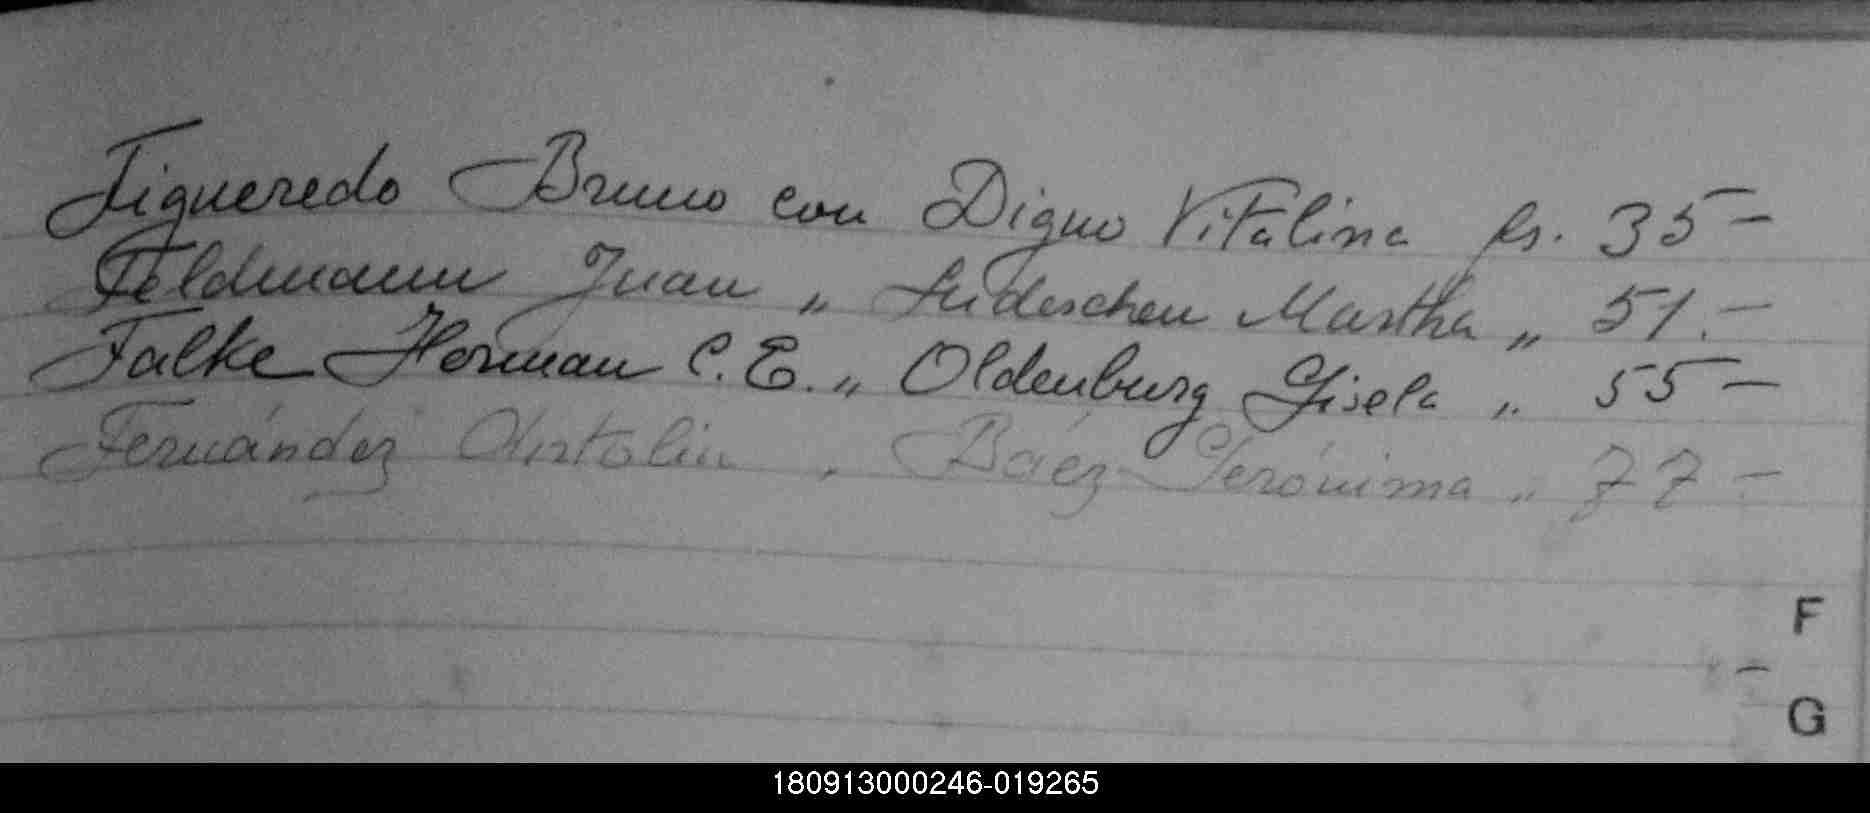 Figueredo Bruno con Digno Vitalina fs. 35-
Feldmann Juan „ Ludeschen Martha „ 51.-
Falke Herman C.E. „ Oldenburg Gisela „ 55-
Fernández Antolin „ Báez Gerónima „ 77-
F
G
180913000246-019265